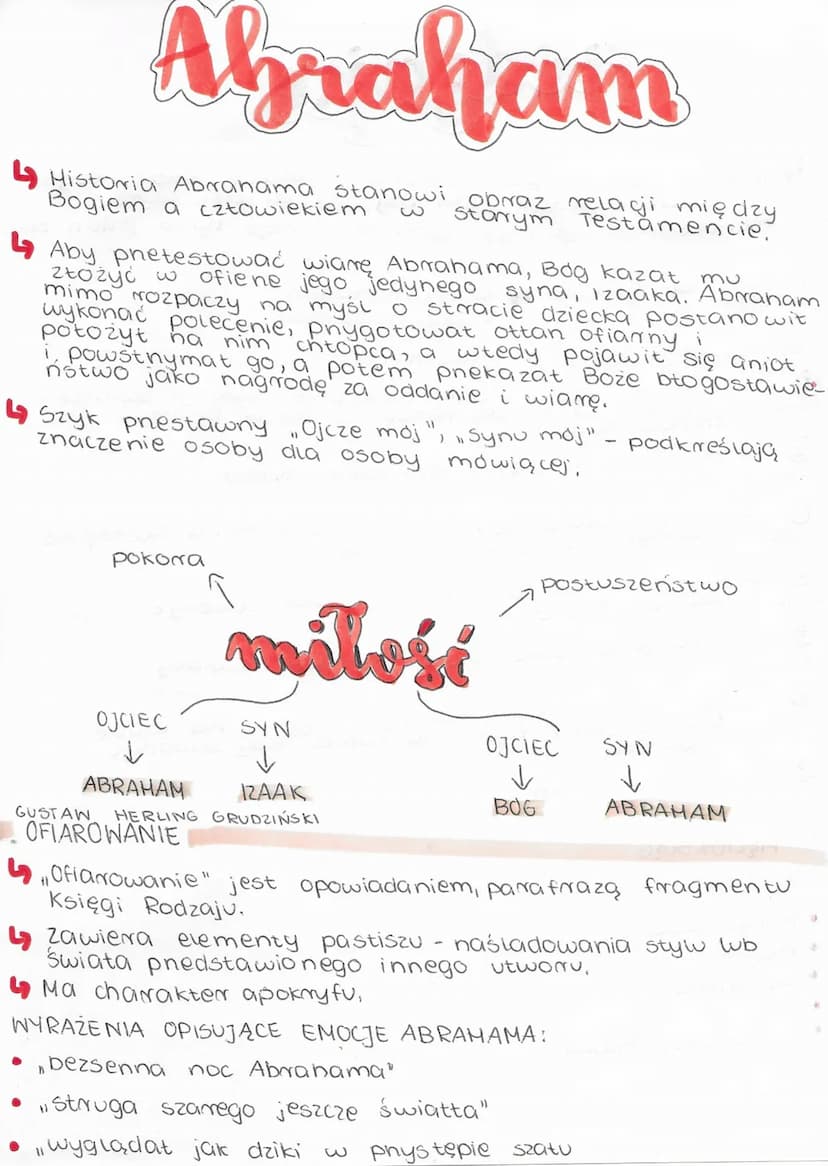 Abraham
↳ Historia Abrahama stanowi obraz relacji między
Bogiem a człowiekiem w Starym Testamencie.
↳ Aby przetestować wiarę Abrahama, Bóg kazał mu
złożyć w ofierze jego jedynego syna, Izaaka. Abraham
mimo rozpaczy na myśl o stracie dziecka postanowił
wykonać polecenie, przygotował ołtarz ofiarny i
położył na nim chłopca, a wtedy pojawił się anioł
i powstrzymał go, a potem przekazał Boże błogosławie-
ństwo jako nagrodę za oddanie i wiarę.
↳ Szyk przestawny „Ojcze mój", „Synu mój" – podkreślają
znaczenie osoby dla osoby mówiącej.
pokora
posłuszeństwo
miłość
OJCIEC SYN OJCIEC SYN
↓ ↓ ↓ ↓
ABRAHAM IZAAK BÓG ABRAHAM
GUSTAW HERLING GRUDZIŃSKI
OFIAROWANIE
↳ „Ofiarowanie" jest opowiadaniem, parafrazą fragmentu
Księgi Rodzaju.
↳ Zawiera elementy pastiszu - naśladowania stylu lub
świata przedstawionego innego utworu.
↳ Ma charakter apokryfu.
WYRAŻENIA OPISUJĄCE EMOCJE ABRAHAMA:
• „bezsenna noc Abrahama"
• „struga szarego jeszcze światła"
• „wyglądał jak dziki w przystępie szału